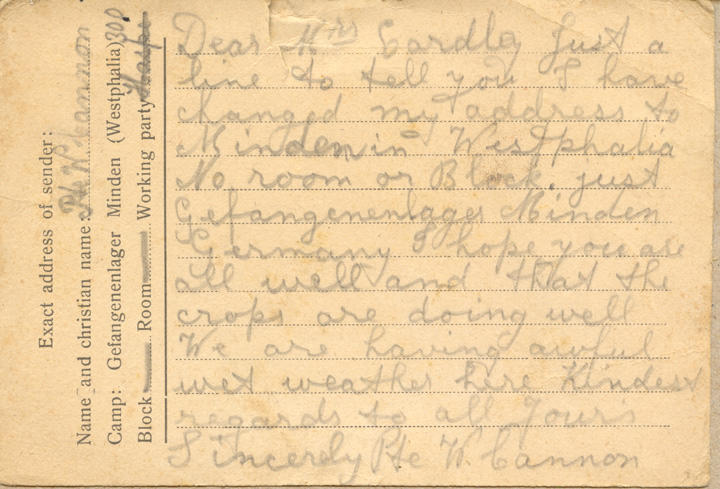 Exact address of sender:
Name and christian name: Pte W. Cannon
Camp: Gefangenenlager Minden (Westphalia) 300
Block Room Working party Haspe
Dear Mrs Eardley Just a
line to tell you I have
changed my address to
Minden in Westphalia
No room or Block. just
Gefangenenlager Minden
Germany I hope you are
all well and that the
crops are doing well
We are having awful
wet weather here Kindest
regards to all Yours
Sincerely Pte W. Cannon